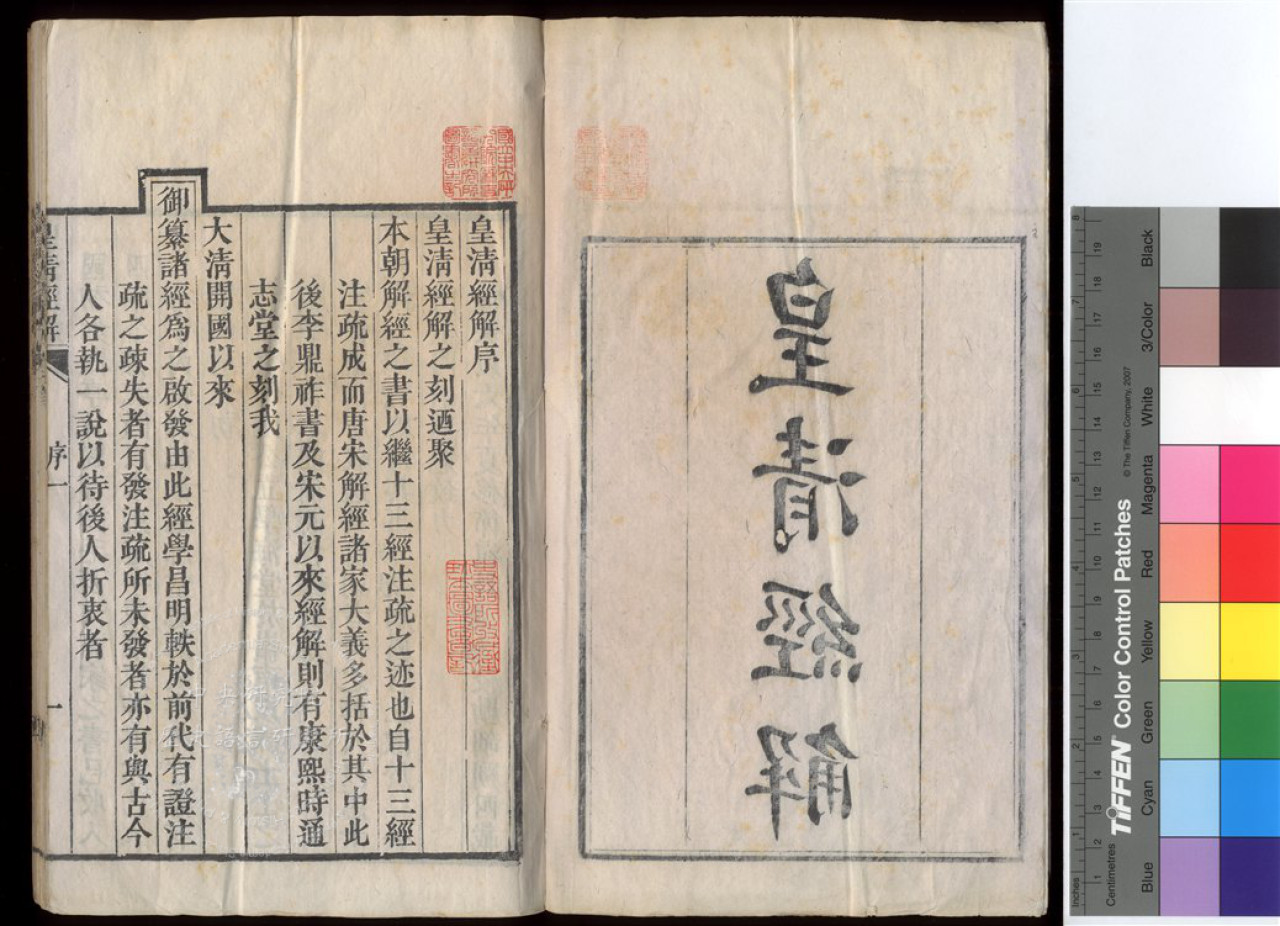 皇清經解
皇清經解序
皇清經解之刻迺聚
本朝解經之書以繼十三經注疏之迹也自十三經
注疏成而唐宋解經諸家大義多括於其中此
後李鼎祚書及宋元以來經解則有康熙時通
志堂之刻我
大清開國以來
御纂諸經爲之啟發由此經學昌明軼於前代有證注
疏之疎失者有發注疏所未發者亦有與古今
人各執一說以待後人折衷者
皇清經解
序一
一
Inches
Centimetres
TIFFEN® Color Control Patches
© The Tiffen Company, 2007
Blue
Cyan
Green
Yellow
Red
Magenta
White
3/Color
Black
1 2 3 4 5 6 7 8
1 2 3 4 5 6 7 8 9 10 11 12 13 14 15 16 17 18 19